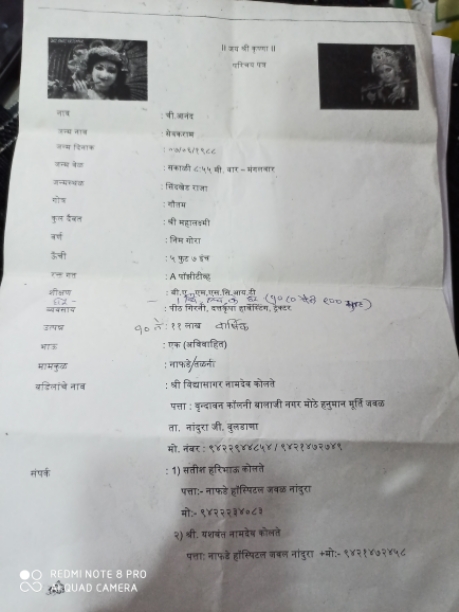 ॥ जय श्री कृष्णा ॥
परिचय पत्र
नाव : ची.आनंद
जन्म नाव : सेवकराम
जन्म दिनांक : ०७/०६/१९८८
जन्म वेळ : सकाळी ८:५५ मी. वार – मंगळवार
जन्मस्थळ : सिंदखेड राजा
गोत्र : गौतम
कुल दैवत : श्री महालक्ष्मी
वर्ण : निम गोरा
ऊँची : ५ फुट ७ इंच
रक्त गत : A पॉझीटीव्ह
शीक्षण : बी.ए. एम.एस.सि.आय.टी
व्यवसाय : पीठ गिरनी, दत्तकृपा हार्वेस्टिंग, ट्रॅक्टर
उत्पन्न १० ते : ११ लाख वार्षिक
भाऊ : एक (अविवाहित)
मामकुळ : नाफडे/तळनी
वडिलांचे नाव : श्री विद्यासागर नामदेव कोलते
पत्ता : वृन्दावन कॉलनी बालाजी नगर मोठे हनुमान मूर्ति जवळ
ता. नांदुरा जी. बुलडाणा
मो. नंबर : ९४२२९४४८५४ / ९४२१४७२७४९
संपर्क : 1) सतीश हरिभाऊ कोलते
पत्ता:- नाफडे हॉस्पिटल जवळ नांदुरा
मो:- ९४२२२३४७८३
२) श्री. यशवंत नामदेव कोलते
पत्ता: नाफडे हॉस्पिटल जवळ नांदुरा +मो:-९४२१४७२४५८
REDMI NOTE 8 PRO
AI QUAD CAMERA